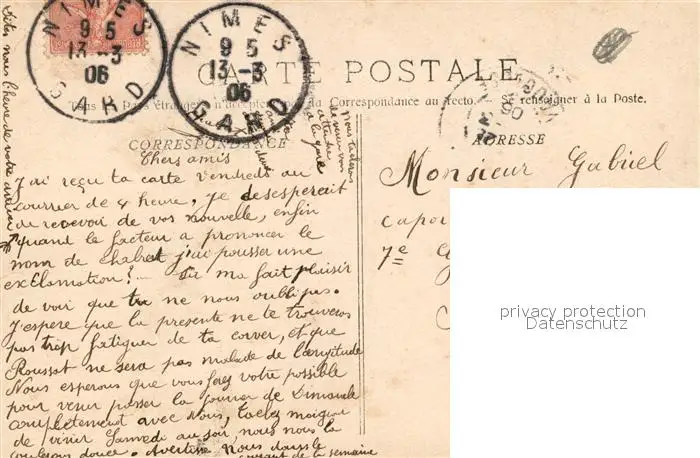 NIMES
9 5
13 -3
06
GARD
NIMES
9 5
13 -3
06
GARD
CARTE POSTALE
Tous les Pays étrangers n'acceptent pas la Correspondance au recto. Se renseigner à la Poste.
CORRESPONDANCE
ADRESSE
Dites nous l'heure de votre
nous
à la gare
Chers amis
J'ai reçu ta carte Vendredi au
courrier de 4 heure, je desesperait
de recevoir de vos nouvelle, enfin
quand le facteur a prononcer le
nom de chabret j'ai pousser une
exclamation! Sa ma fait plaisir
de voir que tu ne nous oubli pas.
J'espere que la presente ne te trouveras
pas trop fatiguer de ta corver, et que
Roussat ne sera pas malade de
Nous esperons que vous ferez votre possible
pour venir passer la journer de Dimanche
completement avec Nous,
de venir Samedi au soir, nous nous la
coulerons douce. nous dans le
courant de la semaine
Monsieur Gabriel
capor
7e
privacy protection
Datenschutz